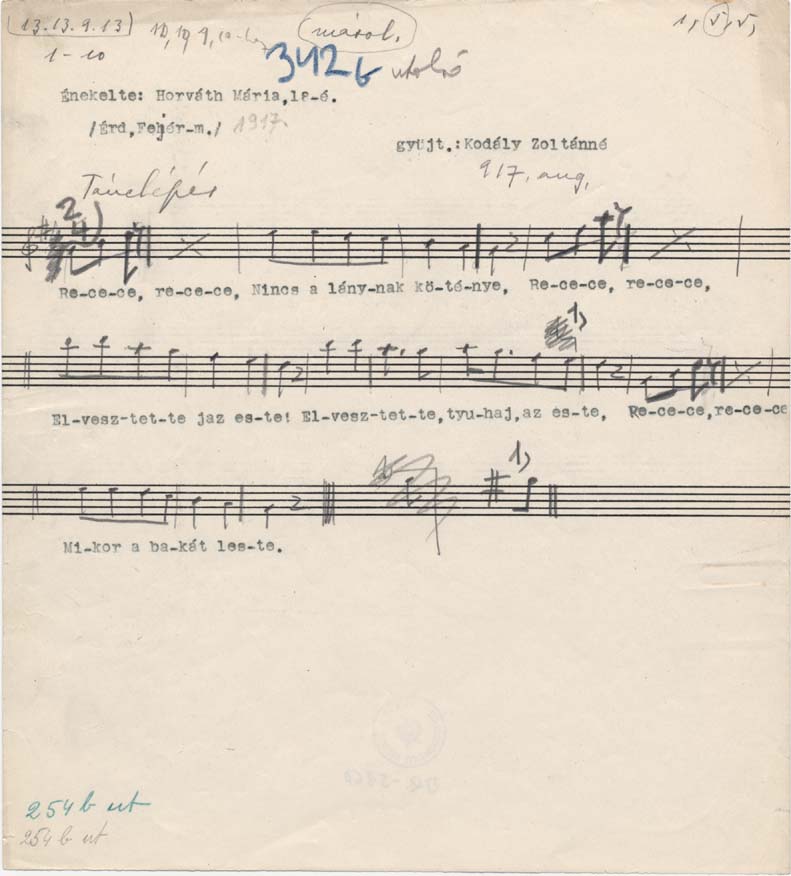 (13.13.9.13)
másol.
1, V, V,
1-10
342b utolsó
Énekelte: Horváth Mária, 18-é.
/Érd, Fehér-m./ 1917.
gyüjt.: Kodály Zoltánné
917, aug,
Tánclépés
Re-ce-ce, re-ce-ce, Nincs a lány-nak kö-té-nye, Re-ce-ce, re-ce-ce,
1)
El-vesz-tet-te jaz es-te! El-vesz-tet-te, tyu-haj, az es-te, Re-ce-ce, re-ce-ce
1)
Mi-kor a ba-kát les-te.
254 b ut
254 b ut